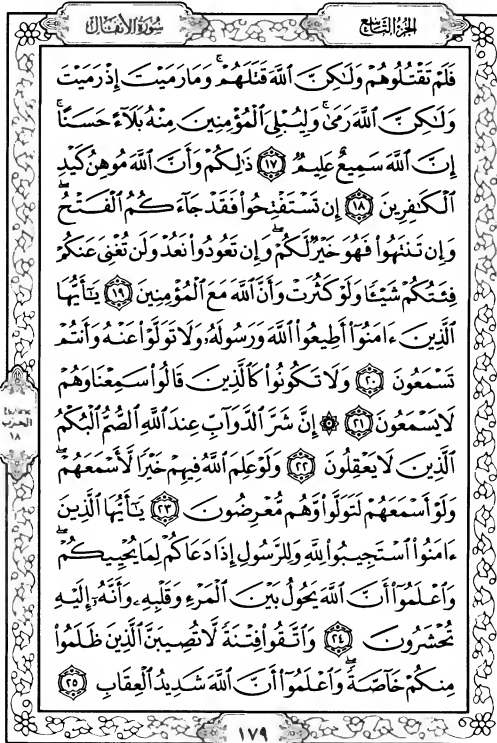 سُورَةُ الأَنفَالِ
الجُزءُ التَّاسِعُ
فَلَمْ تَقْتُلُوهُمْ وَلَٰكِنَّ اللَّهَ قَتَلَهُمْ ۚ وَمَا رَمَيْتَ إِذْ رَمَيْتَ
وَلَٰكِنَّ اللَّهَ رَمَىٰ ۚ وَلِيُبْلِيَ الْمُؤْمِنِينَ مِنْهُ بَلَاءً حَسَنًا ۚ
إِنَّ اللَّهَ سَمِيعٌ عَلِيمٌ ١٧ ذَٰلِكُمْ وَأَنَّ اللَّهَ مُوهِنُ كَيْدِ
الْكَٰفِرِينَ ١٨ إِن تَسْتَفْتِحُوا فَقَدْ جَاءَكُمُ الْفَتْحُ ۖ
وَإِن تَنتَهُوا فَهُوَ خَيْرٌ لَّكُمْ ۖ وَإِن تَعُودُوا نَعُدْ وَلَن تُغْنِيَ عَنكُمْ
فِئَتُكُمْ شَيْـًٔا وَلَوْ كَثُرَتْ وَأَنَّ اللَّهَ مَعَ الْمُؤْمِنِينَ ١٩ يَٰأَيُّهَا
الَّذِينَ ءَامَنُوا أَطِيعُوا اللَّهَ وَرَسُولَهُۥ وَلَا تَوَلَّوْا عَنْهُ وَأَنتُمْ
تَسْمَعُونَ ٢٠ وَلَا تَكُونُوا كَالَّذِينَ قَالُوا سَمِعْنَا وَهُمْ
لَا يَسْمَعُونَ ٢١ ۞ إِنَّ شَرَّ الدَّوَابِّ عِندَ اللَّهِ الصُّمُّ الْبُكْمُ
الَّذِينَ لَا يَعْقِلُونَ ٢٢ وَلَوْ عَلِمَ اللَّهُ فِيهِمْ خَيْرًا لَّأَسْمَعَهُمْ ۖ
وَلَوْ أَسْمَعَهُمْ لَتَوَلَّوا وَّهُم مُّعْرِضُونَ ٢٣ يَٰأَيُّهَا الَّذِينَ
ءَامَنُوا اسْتَجِيبُوا لِلَّهِ وَلِلرَّسُولِ إِذَا دَعَاكُمْ لِمَا يُحْيِيكُمْ ۖ
وَاعْلَمُوا أَنَّ اللَّهَ يَحُولُ بَيْنَ الْمَرْءِ وَقَلْبِهِۦ وَأَنَّهُۥ إِلَيْهِ
تُحْشَرُونَ ٢٤ وَاتَّقُوا فِتْنَةً لَّا تُصِيبَنَّ الَّذِينَ ظَلَمُوا
مِنكُمْ خَاصَّةً ۖ وَاعْلَمُوا أَنَّ اللَّهَ شَدِيدُ الْعِقَابِ ٢٥
الحزب
١٨
١٧٩